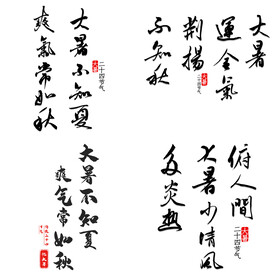 大暑不知夏
爽氣常如秋
大暑
二十四节气
大暑
運金氣
荆揚
不知秋
大暑
二十四节气
大暑不知夏
爽气常如秋
俯人間
大暑少清風
多炎热
大暑
二十四节气